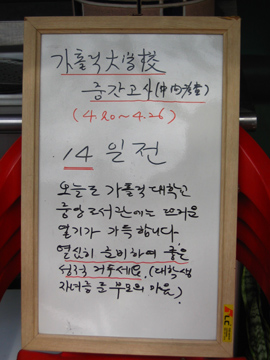 가톨릭大学校
중간고사(中間考査)
(4.20~4.26)
14일전
오늘도 가톨릭대학교
중앙도서관에는 뜨거운
열기가 가득합니다.
열심히 준비하여 좋은
성적 거두세요.(대학생
자녀를 둔 부모의 마음)